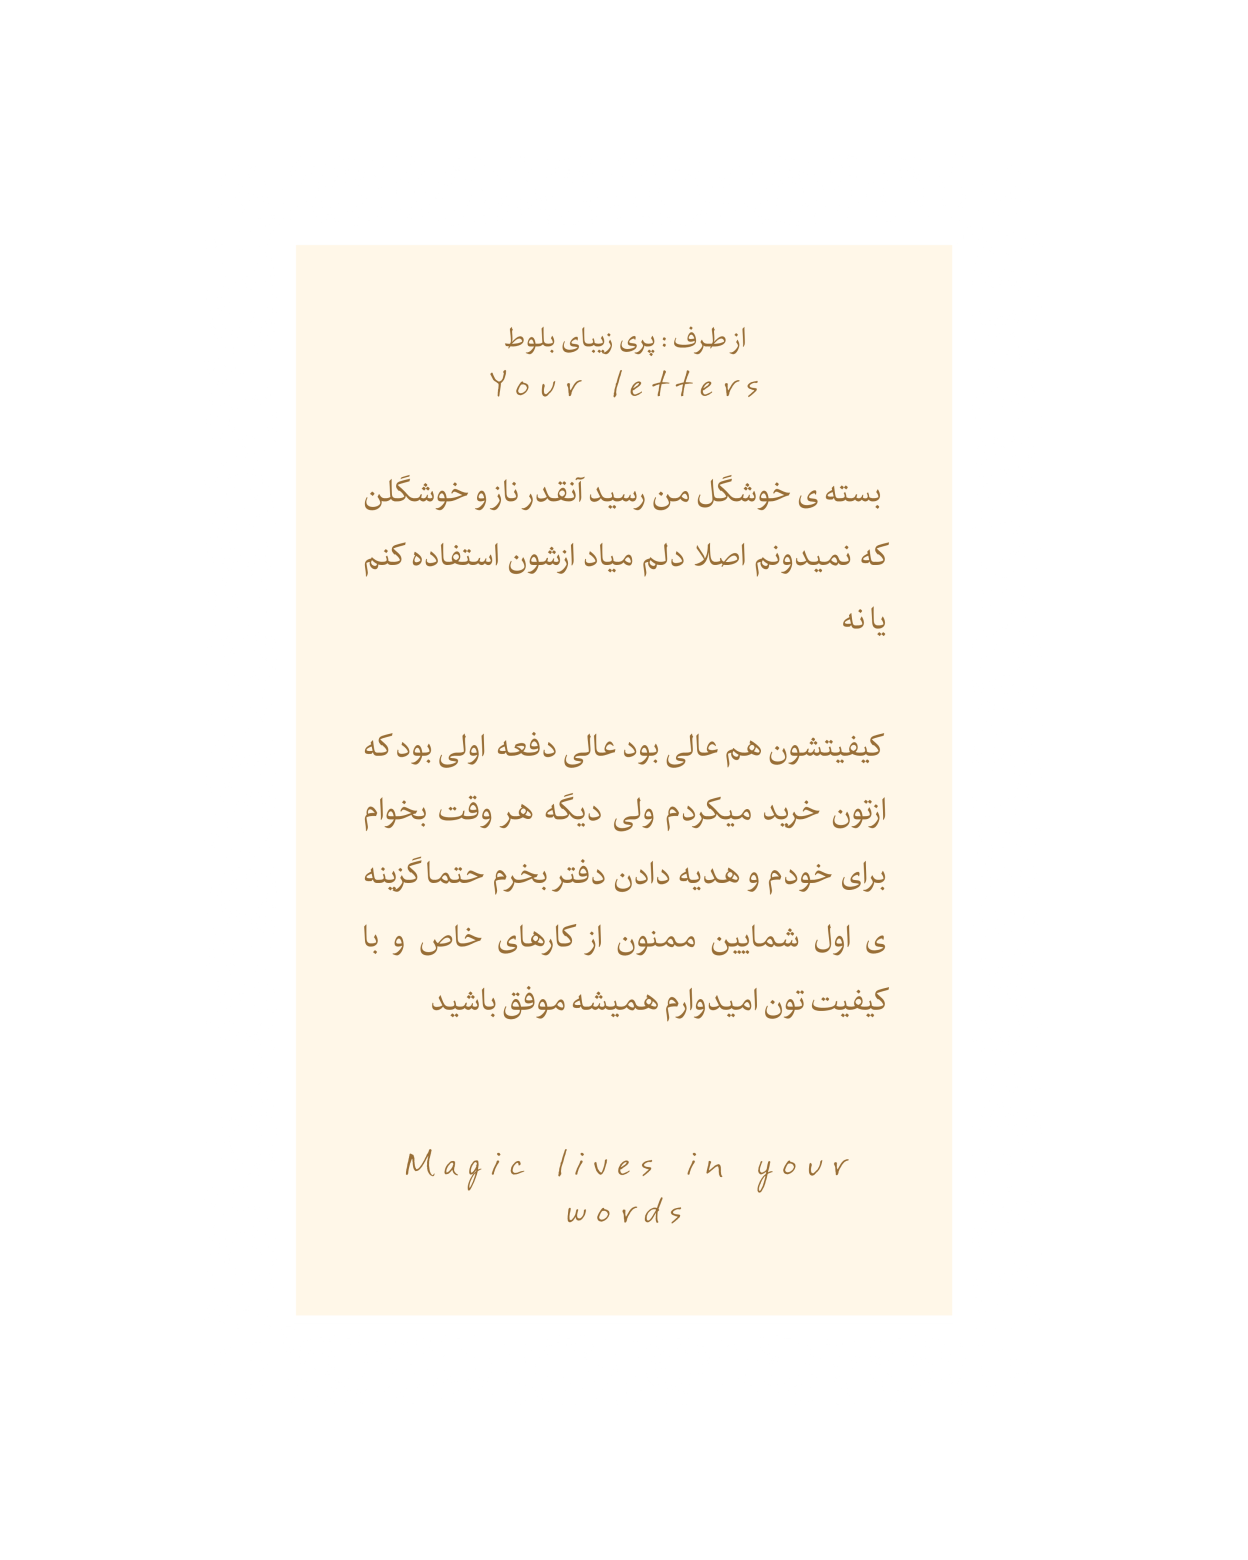 از طرف : پری زیبای بلوط
Your letters
بسته ی خوشگل من رسید آنقدر ناز و خوشگلن
که نمیدونم اصلا دلم میاد ازشون استفاده کنم
یا نه
کیفیتشون هم عالی بود عالی دفعه اولی بود که
ازتون خرید میکردم ولی دیگه هر وقت بخوام
برای خودم و هدیه دادن دفتر بخرم حتما گزینه
ی اول شمایین ممنون از کارهای خاص و با
کیفیت تون امیدوارم همیشه موفق باشید
Magic lives in your
words